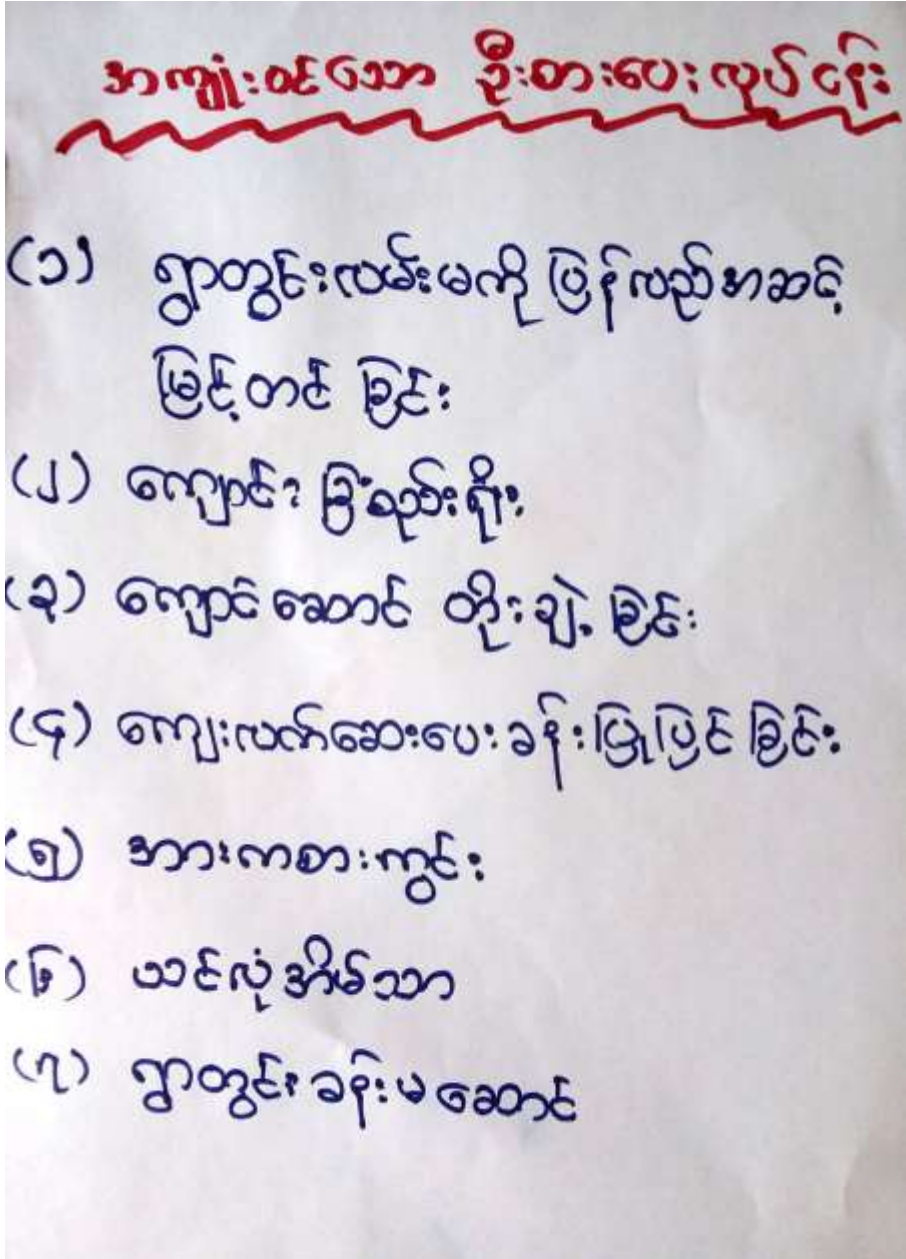 အကျုံးဝင်သော ဦးစားပေးလုပ်ငန်း
(၁) ရွာတွင်းလမ်းမကို ပြန်လည်အဆင့်
မြှင့်တင် ခြင်း
(၂) ကျောင်း ခြံစည်းရိုး
(၃) ကျောင်ဆောင် တိုးချဲ့ ခြင်း
(၄) ကျေးလက်ဆေးပေးခန်းပြုပြင် ခြင်း
(၅) အားကစားကွင်း
(၆) ယင်လုံအိမ်သာ
(၇) ရွာတွင်း ခန်းမဆောင်